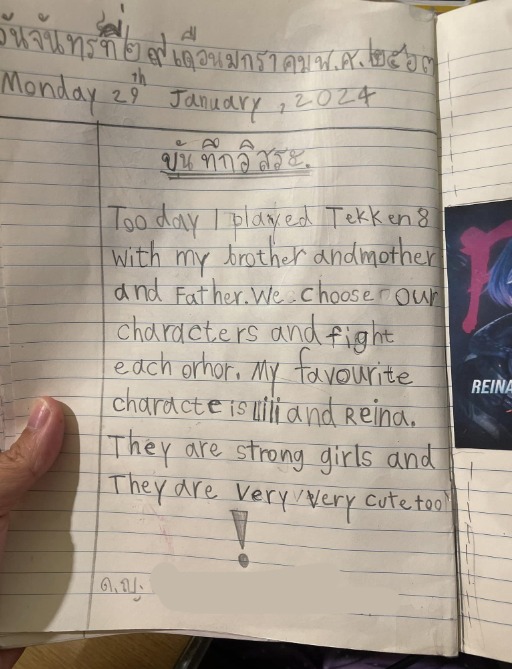 วันจันทร์ที่ ๒๙ เดือนมกราคม พ.ศ. ๒๕๖๗
Monday 29th January, 2024
บันทึกอิสระ.
Too day I played Tekken8
with my brother andmother
and Father. We choose our
characters and fight
each orhor. My favourite
characte is lili and Reina.
They are strong girls and
They are very very cute too
!
ด.ญ.
REINA